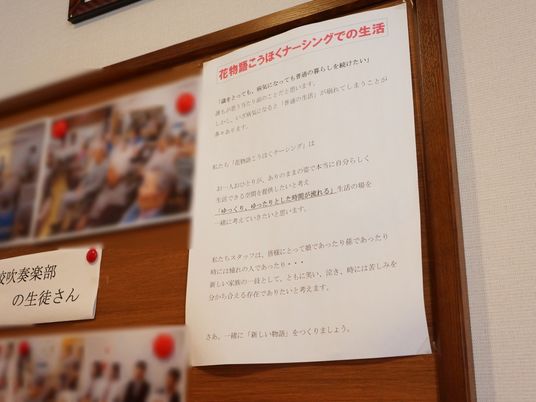 花物語こうほくナーシングでの生活
「歳をとっても、病気になっても普通の暮らしを続けたい」
誰もが思う当たり前のことだと思います。
しかし、いざ病気になると「普通の生活」が崩れてしまうことが
多々あります。
私たち「花物語こうほくナーシング」は
お一人おひとりが、ありのままの姿で本当に自分らしく
生活できる空間を提供したいと考え
「ゆっくり、ゆったりとした時間が流れる」生活の場を
一緒に考えていきたいと思います。
私たちスタッフは、皆様にとって娘であったり孫であったり
時には憧れの人であったり・・・
新しい家族の一員として、ともに笑い、泣き、時には苦しみを
分かち合える存在でありたいと考えます。
さあ、一緒に「新しい物語」をつくりましょう。
校吹奏楽部
の生徒さん